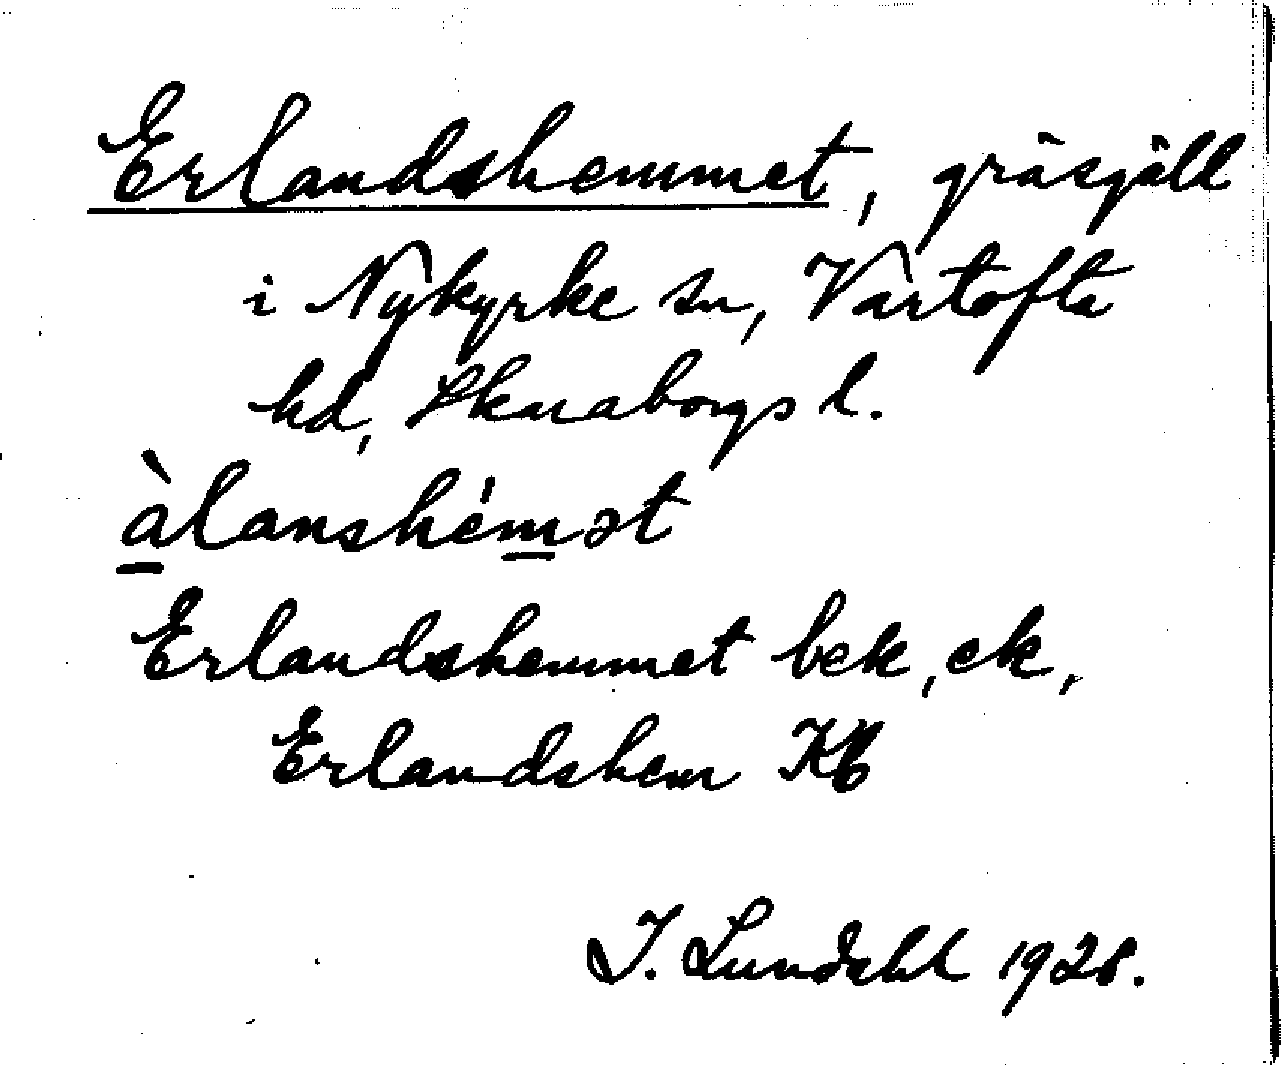 Erlandshemmet, gräsgäll
i Nykyrke sn, Vartofta
hd, Skaraborgs l.
àlanshémət
Erlandshemmet bek, ek,
Erlandshem Kb
I. Lundahl 1928.